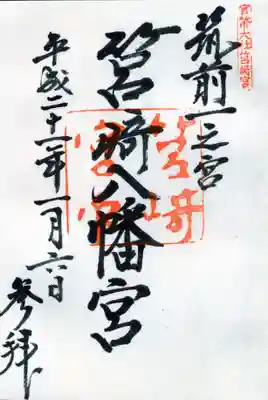 官幣大社筥崎宮
筑前一之宮
筥崎八幡宮
筥崎宮印
平成二十一年一月六日
参拝